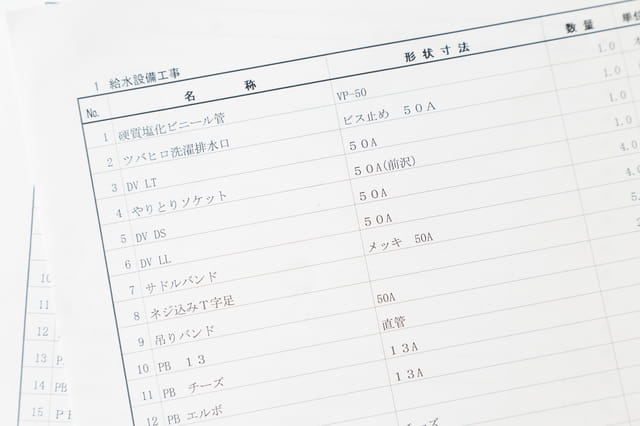 1 給水設備工事
No. 名称 形状寸法 数量 単位
1 硬質塩化ビニール管 VP-50 1.0
2 ツバヒロ洗濯排水口 ビス止め 50A 1.0
3 DV LT 50A 1.0
4 やりとりソケット 50A(前沢) 1.0
5 DV DS 50A 4.0
6 DV LL 50A 4.0
7 サドルバンド メッキ 50A
8 ネジ込みT字足
9 吊りバンド 50A
10 PB 13 直管
11 PB チーズ 13A
12 PB エルボ 13A
チーズ
10
11
12
13 P
14 PB
15 P